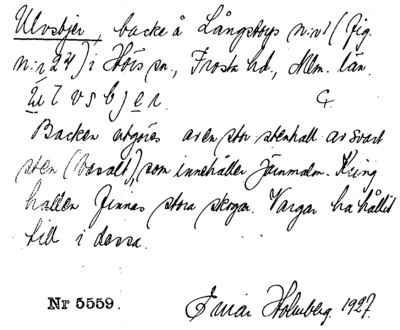 Ulvsbjer, backe å Långstorps n:r 1 (fig.
n:r 24) i Hörs sn., Frosta hd., Mlm. län.
ulvsbjer.
Backen utgöres av en stor stenhall av svart
sten (basalt), som innehåller järnmalm. Kring
hallen finnas stora skogar. Vargar ha hållit
till i dessa.
Nr 5559.
Einar Holmberg. 1927.